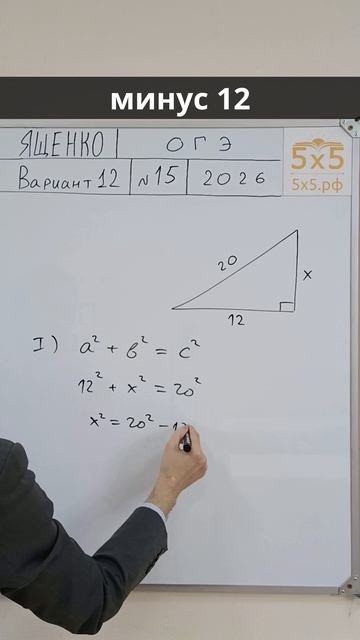 минус 12
ЯЩЕНКО ОГЭ
Вариант 12 №15 2026
5x5
5x5.рф
20
x
12
I) a² + b² = c²
12² + x² = 20²
x² = 20² - 1